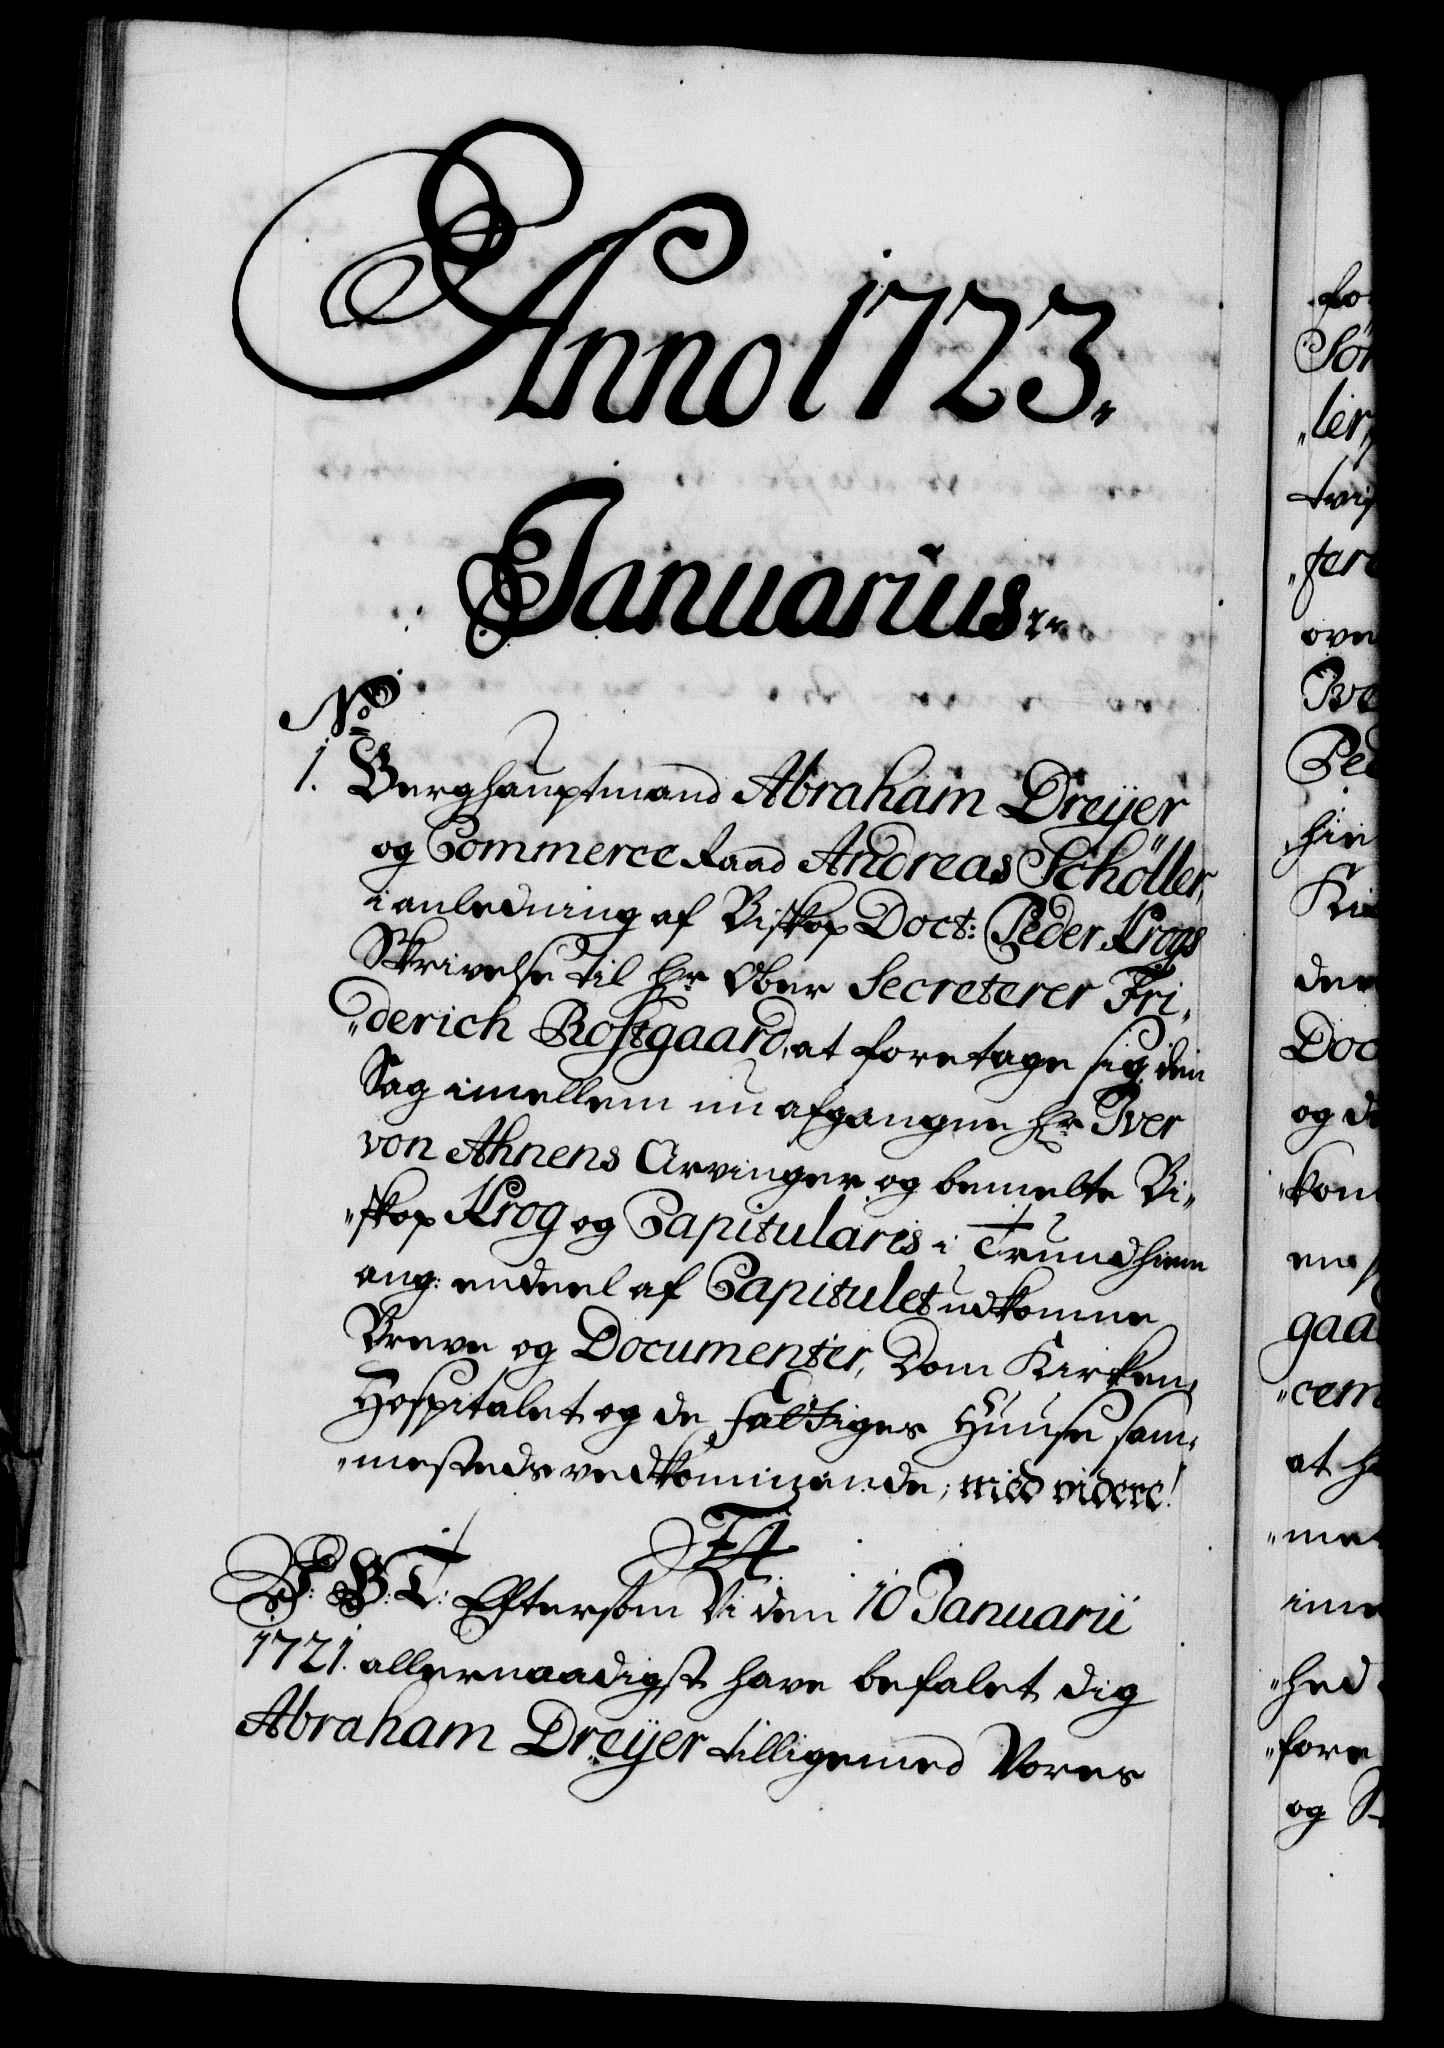 Anno 1723.
Januarius.
No
1. Berghauptmand Abraham Dreÿer
og Commerce Raad Andreas Schöller,
i anledning af Biskop Doct: Peder Krogs
Skrivelse til Hr Ober Secreterer Fri„
„derich Rostgaard, at foretage sig den
Sag imellem nu afgangne Hr Iver
von Ahnens Arvinger og bemelte Bi„
„skop Krog og Capitularis i Trundhiem
ang: endeel af Capitulet udkomne
Breve og Documenter, Dom Kirken,
Hospitalet og de fattiges Huuse sam„
„mesteds vedkommende, med videre!
F4
F: B: T: Eftersom Vi den 10 Januarii
1721. allernaadigst have befalet dig
Abraham Dreÿer tilligemed Vores
for
Sör
„ler,
tvis
„fere
ove
Ped
hie
Kir
der
Doc
og de
„kom
gaa
„cem
at h
„me
ime
„hed
„fore
og S